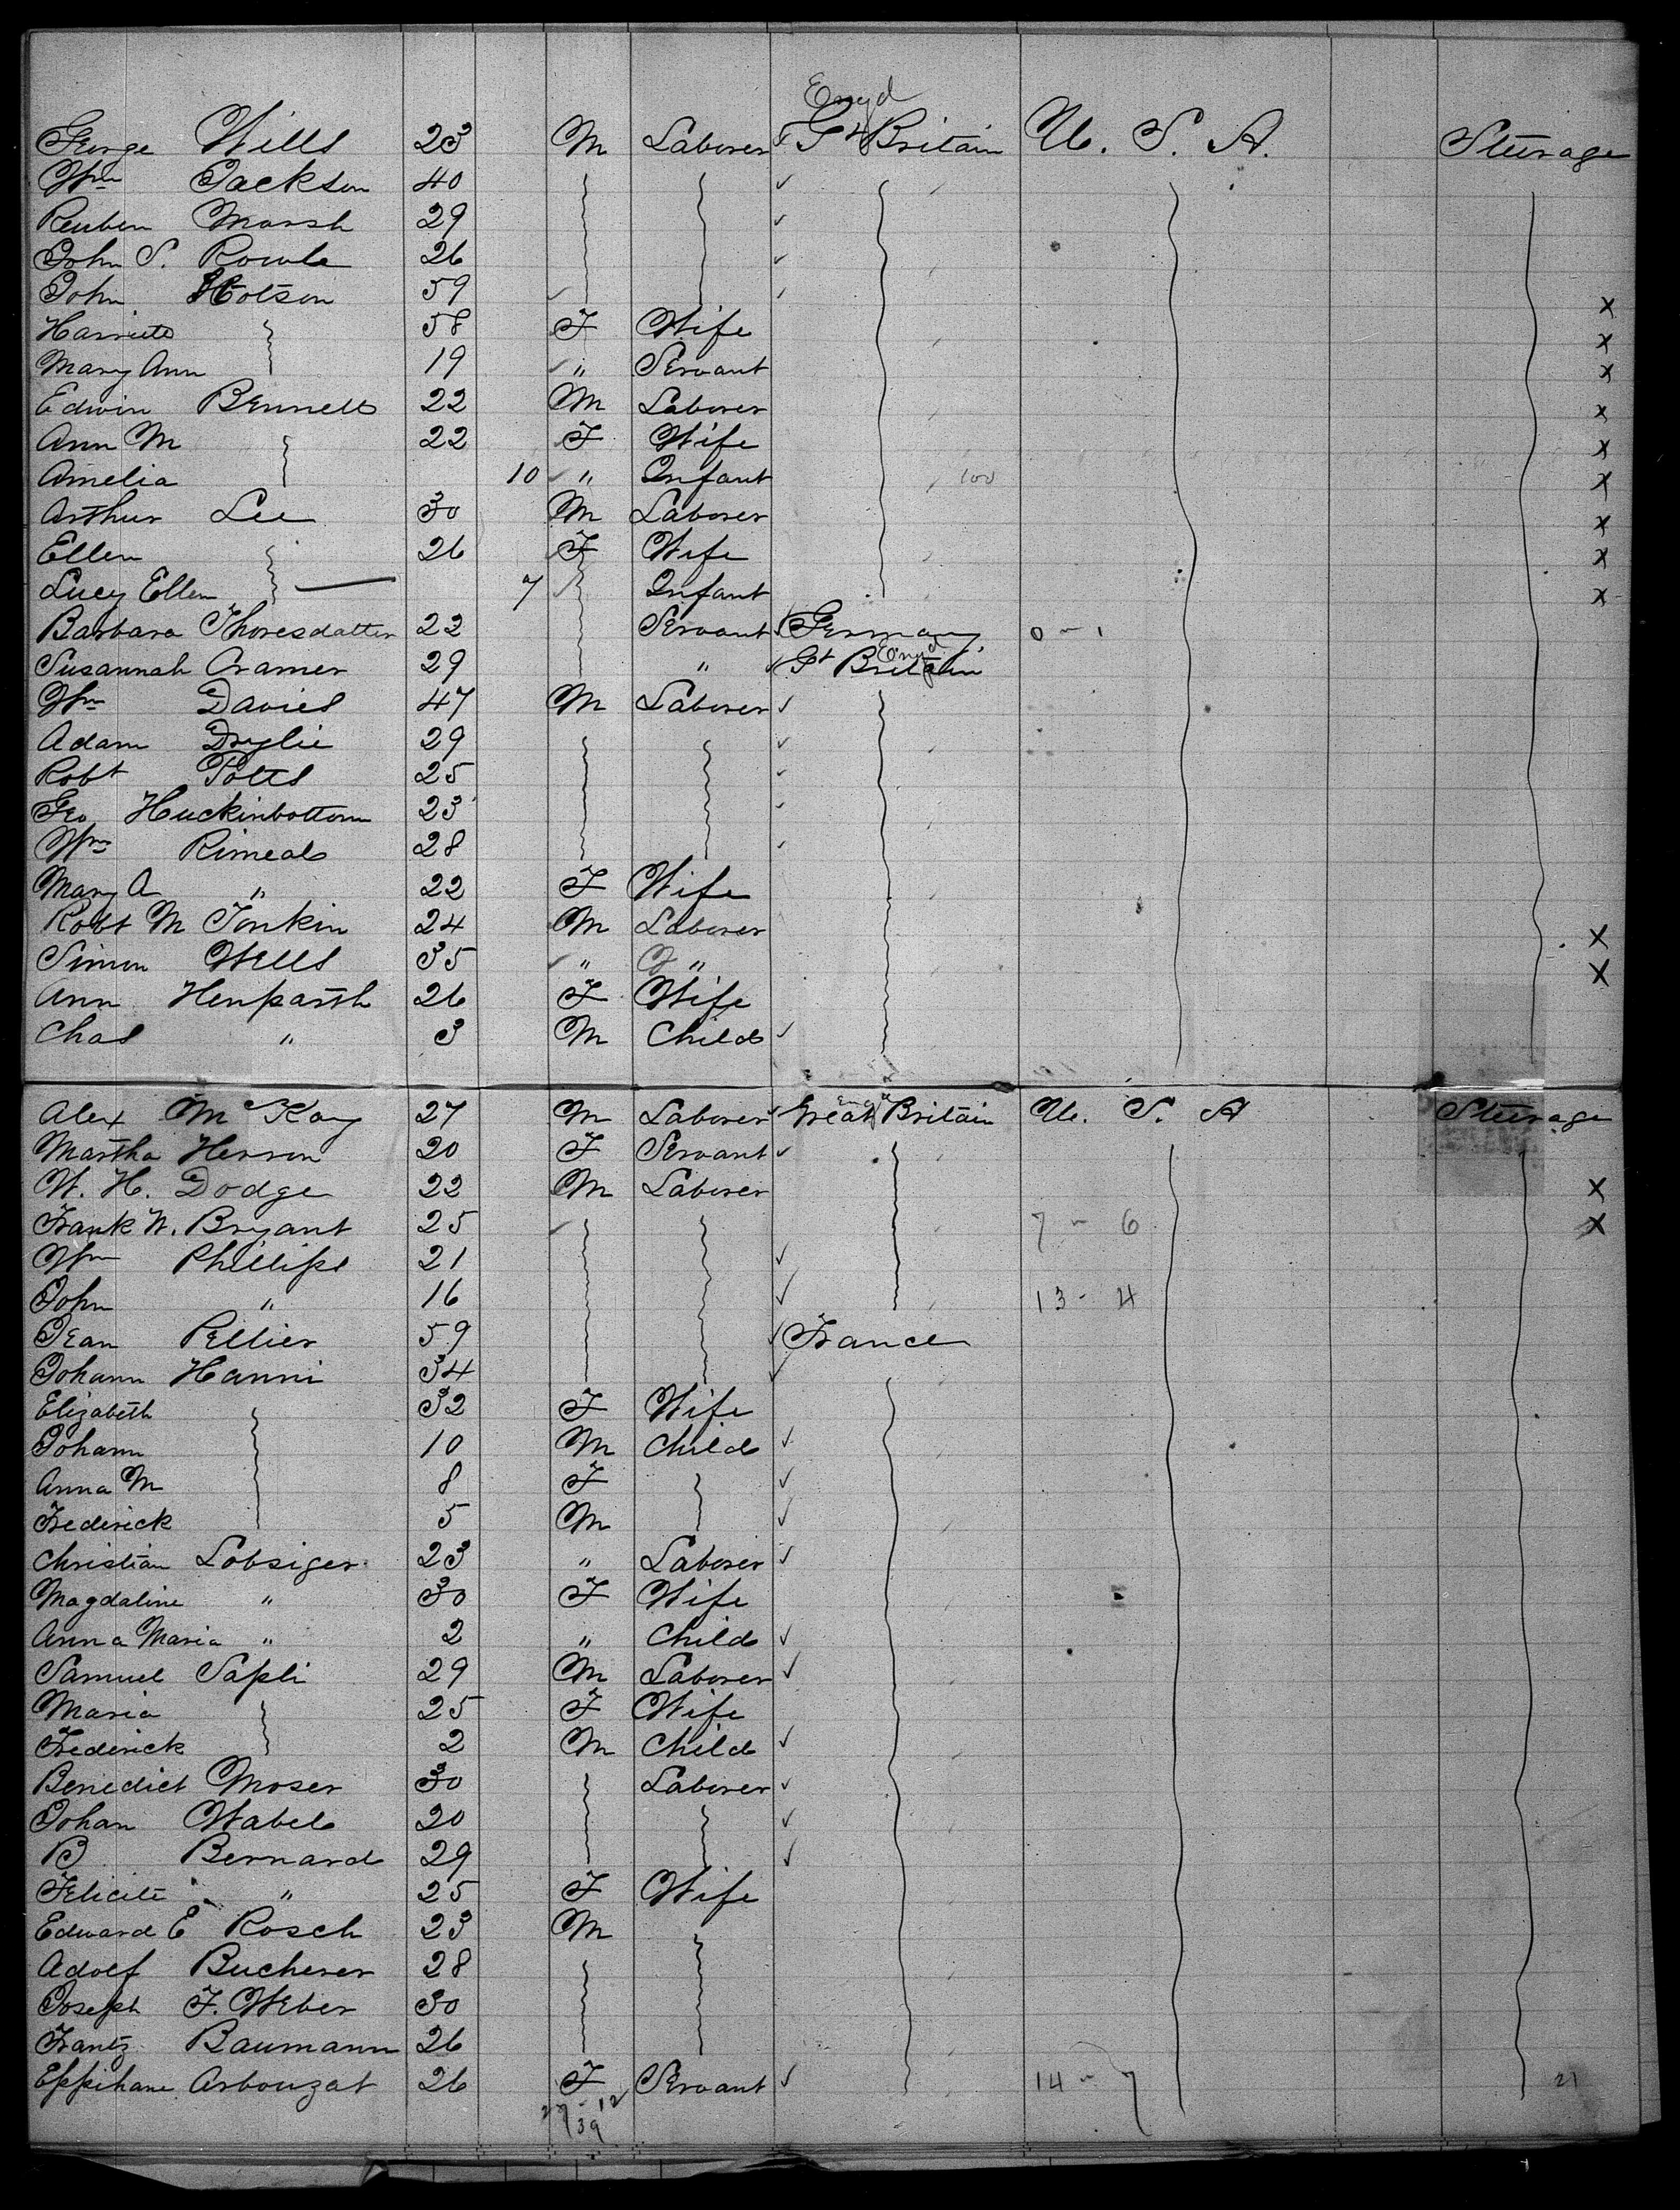 Engd
George Wills 23 M Laborer Gt Britain U. S. A. Steerage
Wm Jackson 40
Reuben Marsh 29
John S. Rowle 26
John Hotson 59 x
Harriett 58 F Wife x
Mary Ann 19 " Servant x
Edwin Bennett 22 M Laborer x
Ann M 22 F Wife x
Amelia 10 " Infant 100 x
Arthur Lee 30 M Laborer x
Ellen 26 F Wife x
Lucy Ellen 7 Infant x
Barbara Thoresdatter 22 Servant Germany 0 - 1
Susannah Cramer 29 " Gt Britain Engd
Wm Davies 47 M Laborer
Adam Drylie 29
Robt Potts 25
Geo Huckinbottom 23
Wm Rimeals 28
Mary A " 22 F Wife
Robt M Tonkin 24 M Laborer x
Simon Wells 35 " " x
Ann Henpasth 26 F Wife
Chas " 3 M Child
Alex McKay 27 M Laborer Great Britain Engd U. S. A Steerage
Martha Herron 20 F Servant
W. H. Dodge 22 M Laborer x
Frank W. Bryant 25 7 - 6 x
Wm Phillips 21
John " 16 13 - 4
Jean Pellier 59 France
Johann Hanni 34
Elizabeth 32 F Wife
Johann 10 M Child
Anna M 8 F
Frederick 5 M
Christian Lobsiger 23 " Laborer
Magdaline " 30 F Wife
Anna Maria " 2 " Child
Samuel Sapli 29 M Laborer
Maria 25 F Wife
Frederick 2 M Child
Benedict Moser 30 Laborer
Johan Wabel 20
B Bernard 29
Felicite " 25 F Wife
Edward E Rosch 23 M
Adolf Bucherer 28
Joseph F. Weber 30
Frantz Baumann 26
Eppihane Arbouzat 26 F Servant 14 - 7 21
27 - 12
39